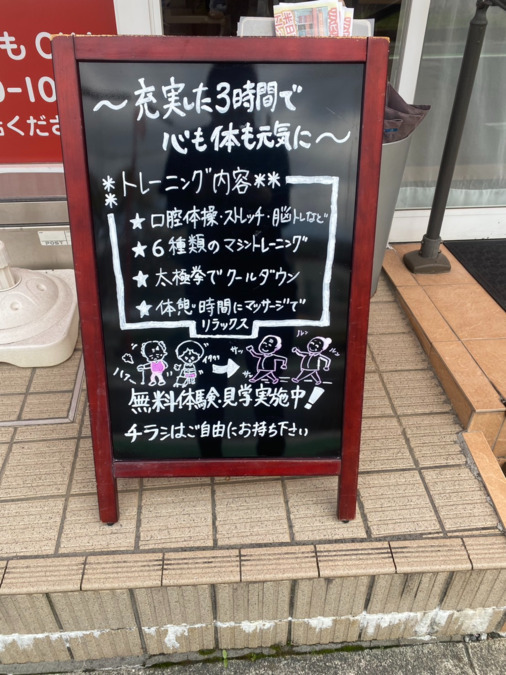 も
～充実した3時間で
心も体も元気に～
＊トレーニング内容＊＊
＊
★口腔体操・ストレッチ・脳トレなど
★6種類のマシントレーニング
★太極拳でクールダウン
★休憩時間にマッサージで
リラックス
無料体験・見学実施中！
チラシはご自由にお持ち下さい